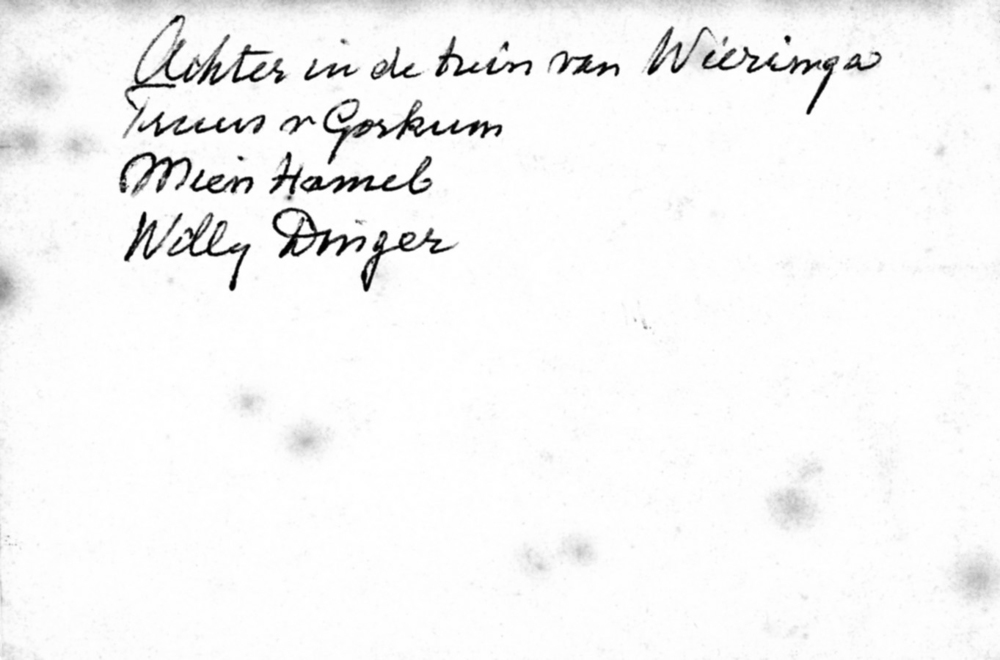 Achter in de tuin van Wieringa
Truus v Gorkum
Mien Hamel
Willy Dinger